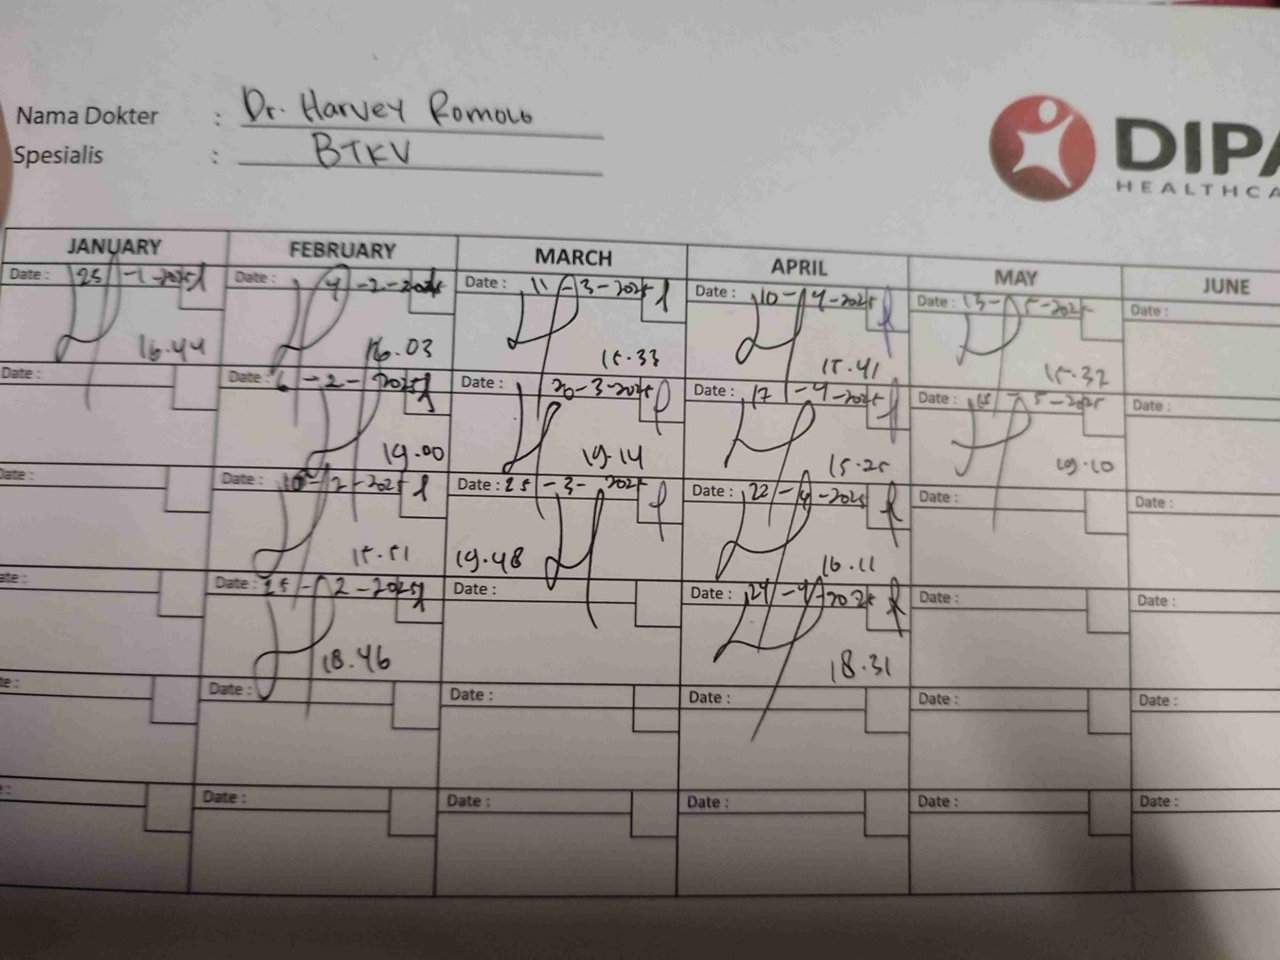 Nama Dokter : Dr. Harvey Romolo
Spesialis : BTKV
DIPA
HEALTHCA
JANUARY FEBRUARY MARCH APRIL MAY JUNE
Date : 25-1-2025 Date : 4-2-2025 Date : 11-3-2025 Date : 10-4-2025 Date : 13-5-2025 Date :
16.44 16.03 15.33 15.41 15.32
Date : Date : 6-2-2025 Date : 20-3-2025 Date : 17-4-2025 Date : 5-2025 Date :
19.00 19.14 15.25 19.10
Date : Date : 10-2-2025 Date : 25-3-2025 Date : 22-4-2025 Date : Date :
15.51 19.48 16.11
Date : 25-2-2025 Date : Date : 24-4-2025 Date : Date :
18.46 18.31
Date : Date : Date : Date : Date :
Date : Date : Date : Date : Date :